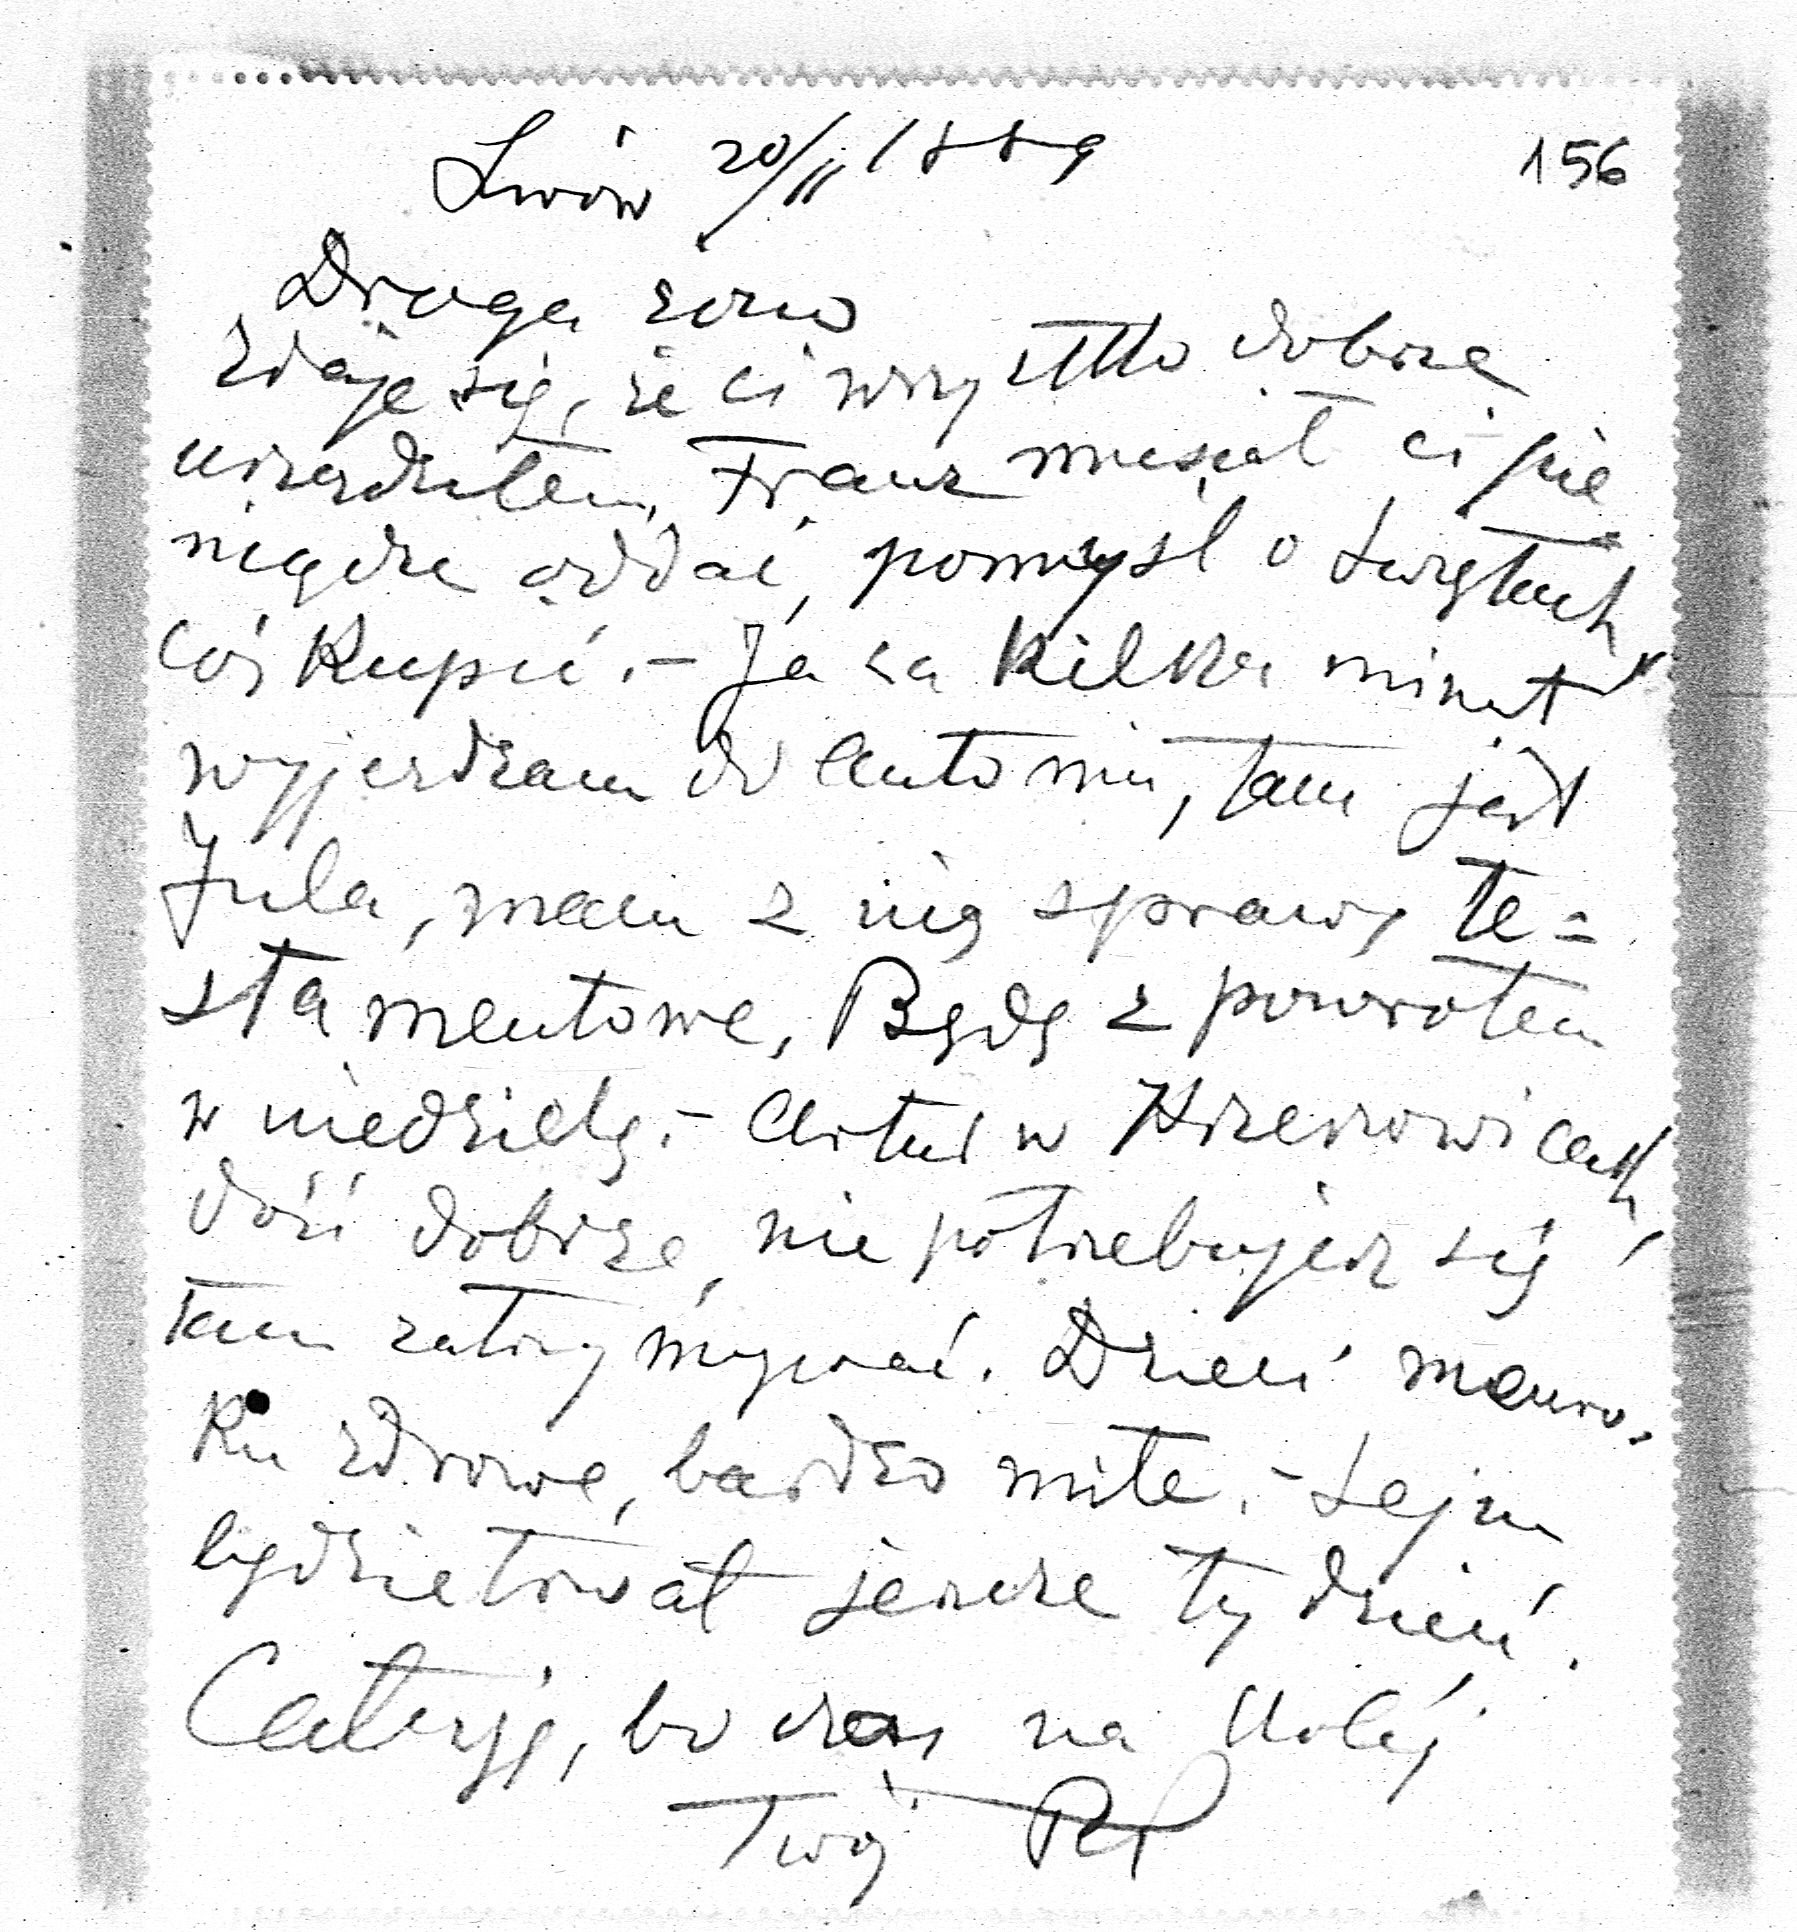 Lwów 20/11 1889
156
Droga żono
Zdaje się, że ci wszystko dobrze
urządziłem, Franz musiał ci pie
niądze oddać, pomyśl o świętach
coś kupić. – Ja za kilka minut
wyjeżdżam do Antonin, tam jest
Jula, mam z nią sprawy te=
stamentowe, Będę z powrotem
w niedzielę. – Artur w Krzeszowicach
dość dobrze, nie potrzebujesz się
tam zatrzymywać. Dzieci
zdrowe, bardzo miłe. – Sejm
będzie trwał jeszcze tydzień.
Całuję, bo czas na kolej
Twój